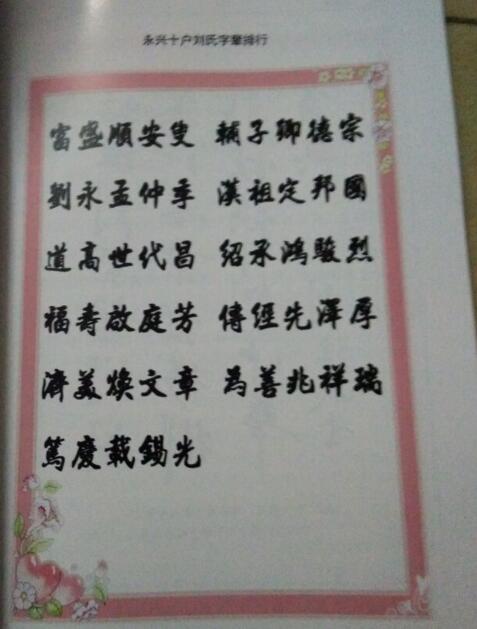 永兴十户刘氏字辈排行
富盛順安叟 輔子卿德宗
劉永孟仲季 漢祖定邦國
道高世代昌 紹承鴻駿烈
福壽啟庭芳 傳經先澤厚
濟美煥文章 為善兆祥瑞
篤慶載錫光